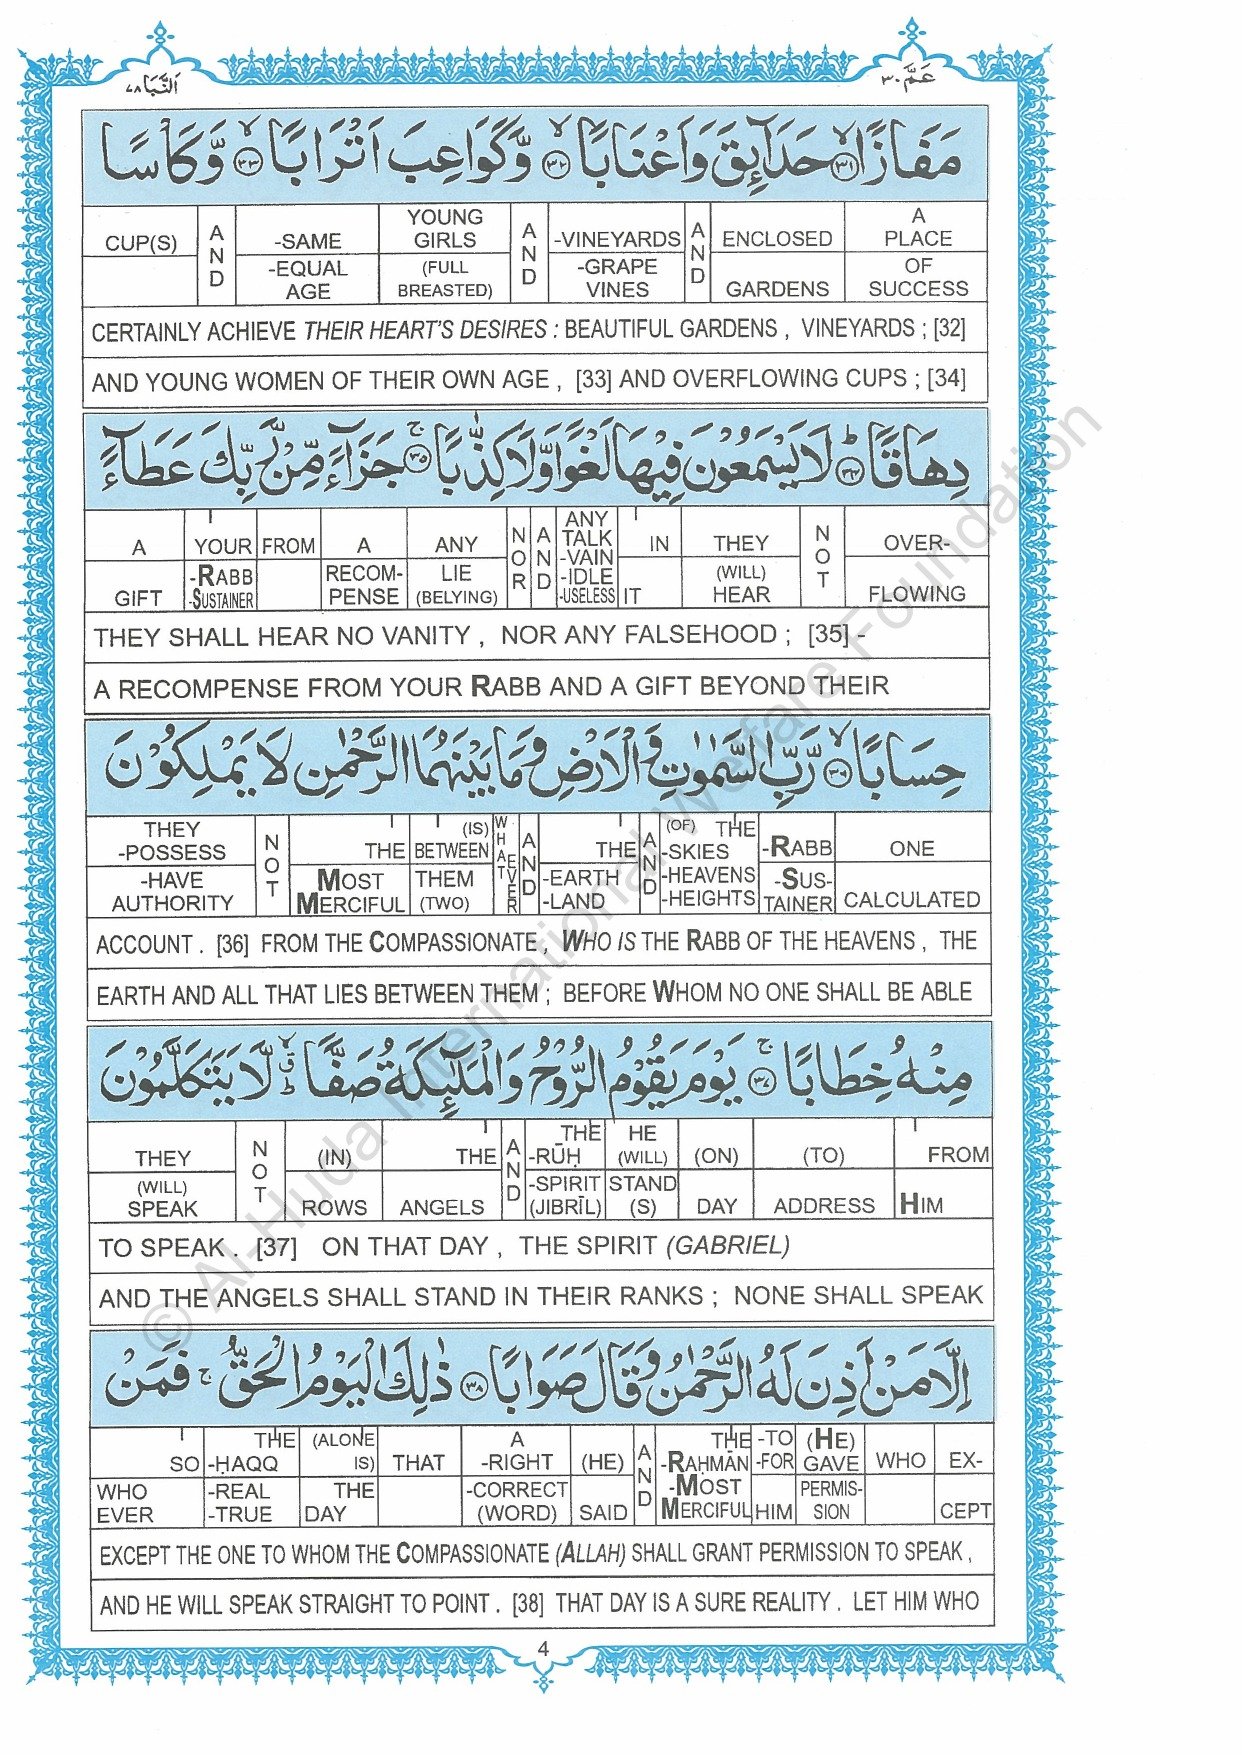 عَمَّ ٣٠
اَلنَّبَا ٧٨
مَفَازًا ۙ﴿٣١﴾ حَدَآئِقَ وَاَعْنَابًا ۙ﴿٣٢﴾ وَّكَوَاعِبَ اَتْرَابًا ۙ﴿٣٣﴾ وَّكَاْسًا
A PLACE OF SUCCESS
ENCLOSED GARDENS
AND
-VINEYARDS -GRAPE VINES
AND
YOUNG GIRLS (FULL BREASTED)
-SAME -EQUAL AGE
AND
CUP(S)
CERTAINLY ACHIEVE THEIR HEART'S DESIRES : BEAUTIFUL GARDENS , VINEYARDS ; [32]
AND YOUNG WOMEN OF THEIR OWN AGE , [33] AND OVERFLOWING CUPS ; [34]
دِهَاقًا ؕ﴿٣٤﴾ لَا يَسْمَعُوْنَ فِيْهَا لَغْوًا وَّلَا كِذّٰبًا ۚ﴿٣٥﴾ جَزَآءً مِّنْ رَّبِّكَ عَطَآءً
OVER- FLOWING
NOT
THEY (WILL) HEAR
IN IT
ANY TALK -VAIN -IDLE -USELESS
AND
NOR
ANY LIE (BELYING)
A RECOM- PENSE
FROM
YOUR -RABB -SUSTAINER
A GIFT
THEY SHALL HEAR NO VANITY , NOR ANY FALSEHOOD ; [35] -
A RECOMPENSE FROM YOUR RABB AND A GIFT BEYOND THEIR
حِسَابًا ۙ﴿٣٦﴾ رَّبِّ السَّمٰوٰتِ وَالْاَرْضِ وَمَا بَيْنَهُمَا الرَّحْمٰنِ لَا يَمْلِكُوْنَ
ONE CALCULATED
-RABB -SUS- TAINER
(OF) THE -SKIES -HEAVENS -HEIGHTS
AND
THE -EARTH -LAND
AND
WHATEVER
(IS) BETWEEN THEM (TWO)
THE MOST MERCIFUL
NOT
THEY -POSSESS -HAVE AUTHORITY
ACCOUNT . [36] FROM THE COMPASSIONATE , WHO IS THE RABB OF THE HEAVENS , THE
EARTH AND ALL THAT LIES BETWEEN THEM ; BEFORE WHOM NO ONE SHALL BE ABLE
مِنْهُ خِطَابًا ۚ﴿٣٧﴾ يَوْمَ يَقُوْمُ الرُّوْحُ وَالْمَلٰٓئِكَةُ صَفًّا ۙق ط لَّا يَتَكَلَّمُوْنَ
FROM HIM
(TO) ADDRESS
(ON) DAY
HE (WILL) STAND (S)
THE -RŪḤ -SPIRIT (JIBRĪL)
AND
THE ANGELS
(IN) ROWS
NOT
THEY (WILL) SPEAK
TO SPEAK . [37] ON THAT DAY , THE SPIRIT (GABRIEL)
AND THE ANGELS SHALL STAND IN THEIR RANKS ; NONE SHALL SPEAK
اِلَّا مَنْ اَذِنَ لَهُ الرَّحْمٰنُ وَقَالَ صَوَابًا ﴿٣٨﴾ ذٰلِكَ الْيَوْمُ الْحَقُّ ۚ فَمَنْ
EX- CEPT
WHO
(HE) GAVE PERMIS- SION
-TO -FOR HIM
THE -RAḤMĀN -MOST MERCIFUL
AND
(HE) SAID
A -RIGHT -CORRECT (WORD)
THAT
(ALONE IS) THE DAY
THE -ḤAQQ -REAL -TRUE
SO WHO EVER
EXCEPT THE ONE TO WHOM THE COMPASSIONATE (ALLAH) SHALL GRANT PERMISSION TO SPEAK ,
AND HE WILL SPEAK STRAIGHT TO POINT . [38] THAT DAY IS A SURE REALITY . LET HIM WHO
4
© Al-Huda International Welfare Foundation